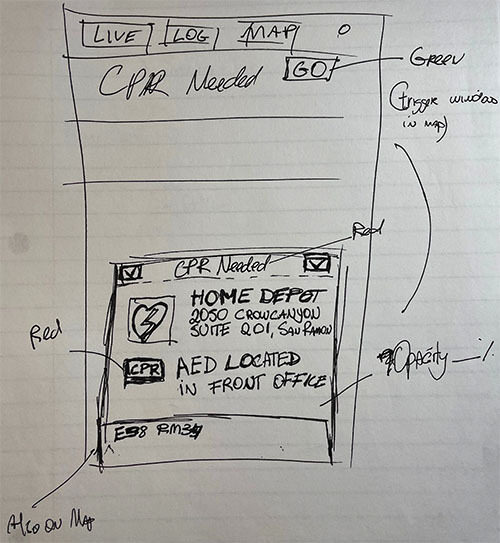 LIVE LOG MAP
CPR Needed GO
Green
(trigger window
in map)
Red
CPR Needed
HOME DEPOT
2050 CROWCANYON
SUITE 201, SAN RAMON
Red
CPR AED LOCATED
IN FRONT OFFICE
Opacity —%
E38 RM34
Also on Map